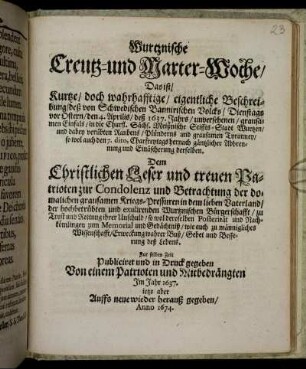 Wurtznische
Creutz-und Marter-Woche/
Das ist/
Kurtze/ doch wahrhafftige/ eigentliche Beschrei-
bung/ deß von Schwedischen Bannirischen Volcks/ Dienstags
vor Ostern/ den 4. Aprilis/ deß 1637. Jahrs/ unversehenen/ grausa-
men Einfals/ in die Churfl. Sächs. Meißnische Stiffts-Stadt Wurtzen/
und dabey verübten Raubens/ Plünderns und grausamen Tyranney/
so wol auch den 7. dito, Charfreytags hernach gäntzlicher Abbren-
nung und Einäscherung derselben.
Dem
Christlichen Leser und treuen Pa-
trioten zur Condolenz und Betrachtung der do-
maligen grausamen Kriegs-Pressuren in dem lieben Vaterland/
der hochbetrübten und exulirenden Wurtznischen Bürgerschafft/ zu
Trost und Rettung ihrer Unschuld/ so wol derselben Posterität und Nach-
kömlingen zum Memorial und Gedächtniß/ wie auch zu männigliches
Wissenschafft/ Erweckung wahrer Buß/ Gebet und Besse-
rung deß Lebens.
Zur selben Zeit
Publiciret und in Druck gegeben
Von einem Patrioten und Mitbedrängten
Im Jahr 1637.
jetzo aber
Auffs neue wieder herauß gegeben/
Anno 1674.